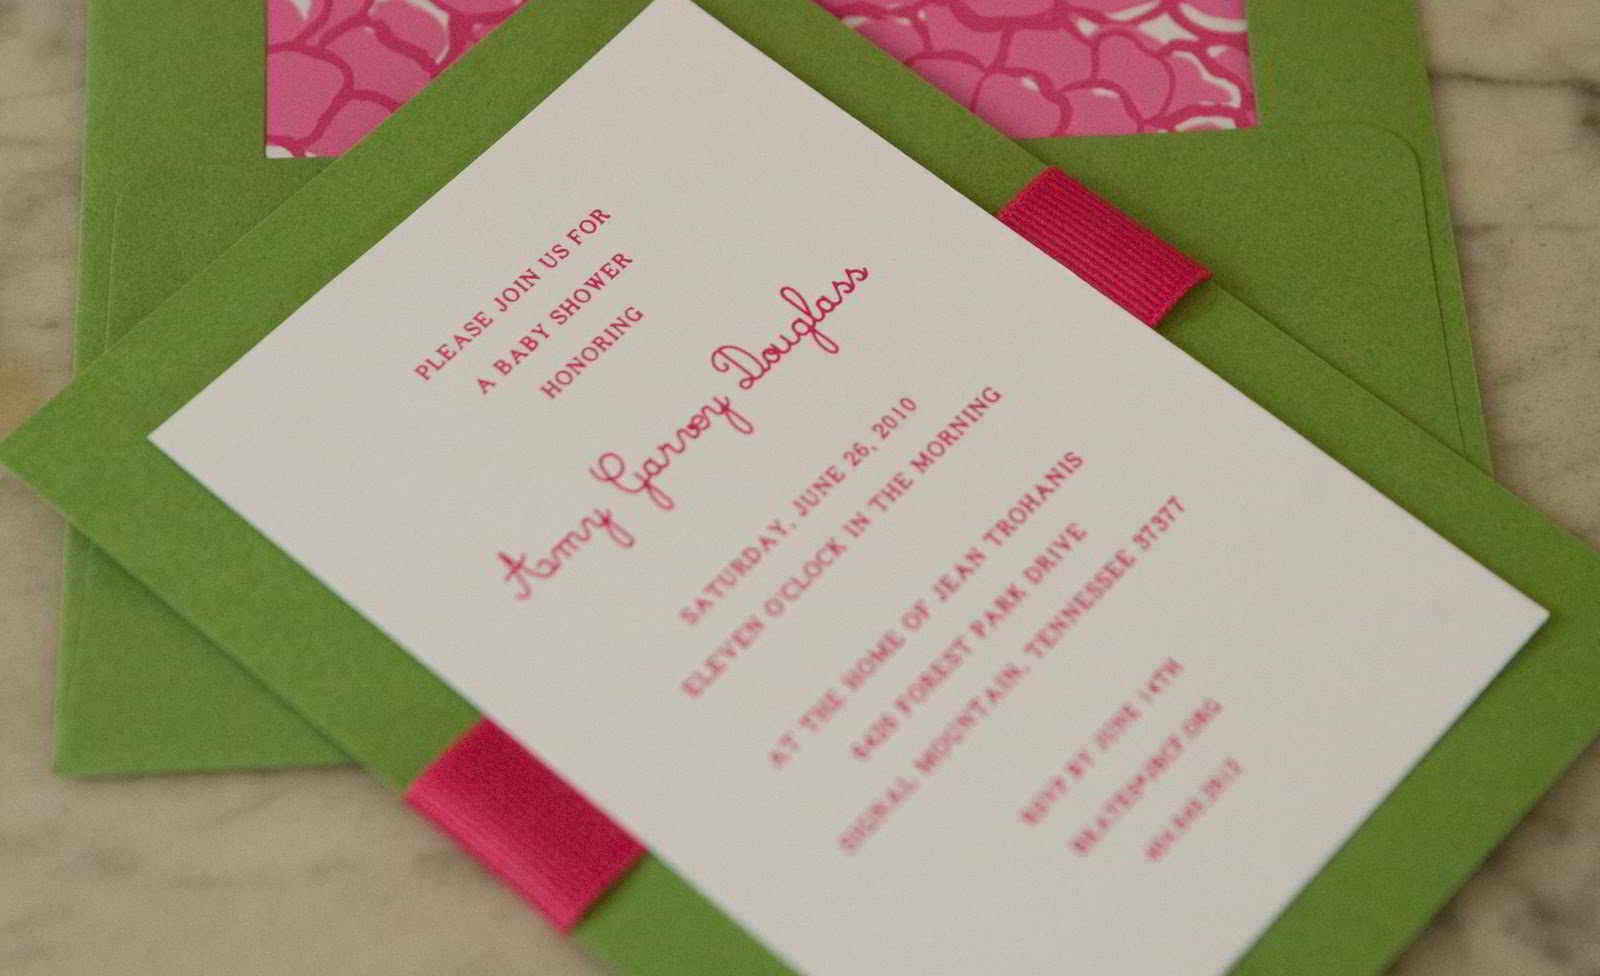 PLEASE JOIN US FOR
A BABY SHOWER
HONORING
Amy Garvey Douglass
SATURDAY, JUNE 26, 2010
ELEVEN O'CLOCK IN THE MORNING
AT THE HOME OF JEAN TROHANIS
FOREST PARK DRIVE
SIGNAL MOUNTAIN, TENNESSEE 37377
RSVP BY JUNE 14TH